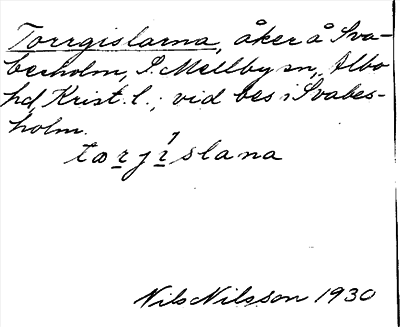 Torrgislarna, åker å Sva-
besholm, S. Mellby sn, Albo
hd, Krist. l.; vid bes. i Svabes-
holm.
tærjı̀slana
Nils Nilsson 1930